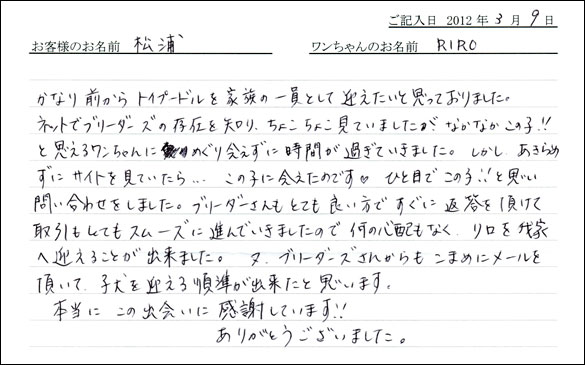 ご記入日 2012 年 3 月 9 日
お客様のお名前 松浦 ワンちゃんのお名前 RIRO
かなり前からトイプードルを家族の一員として迎えたいと思っておりました。
ネットでブリーダーズの存在を知り、ちょこちょこ見ていましたが なかなかこの子!!
と思えるワンちゃんに めぐり会えずに時間が過ぎていきました。しかし、あきらめ
ずにサイトを見ていたら… この子に会えたのです♥ ひと目でこの子!!と思い
問い合わせをしました。ブリーダーさんもとても良い方ですぐに返答を頂けて
取引もとてもスムーズに進んでいきましたので何の心配もなく、リロを我家
へ迎えることが出来ました。又、ブリーダーズさんからもこまめにメールを
頂いて、子犬を迎える順準が出来たと思います。
本当に この出会いに感謝しています!!
ありがとうございました。